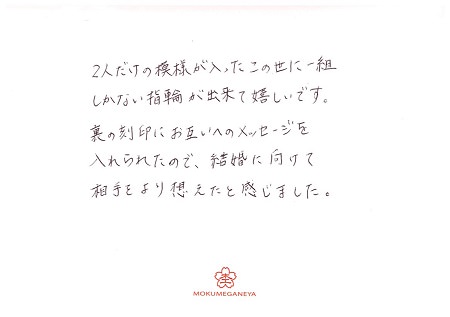 2人だけの模様が入ったこの世に一組
しかない指輪が出来て嬉しいです。
裏の刻印にお互いへのメッセージを
入れられたので、結婚に向けて
相手をより想えたと感じました。
MOKUMEGANEYA